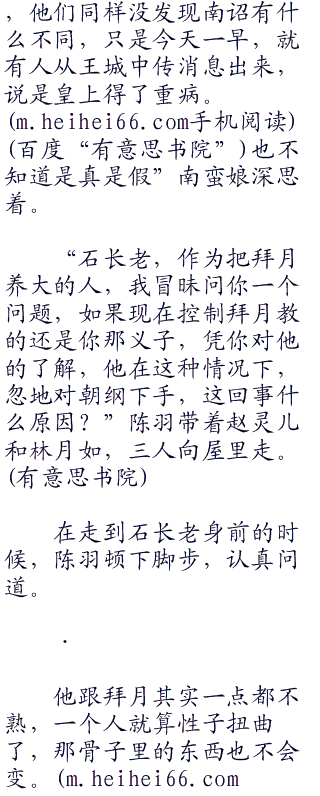 ，他们同样没发现南诏有什
么不同，只是今天一早，就
有人从王城中传消息出来，
说是皇上得了重病。
(m.heihei66.com手机阅读)
(百度“有意思书院”)也不
知道是真是假”南蛮娘深思
着。
“石长老，作为把拜月
养大的人，我冒昧问你一个
问题，如果现在控制拜月教
的还是你那义子，凭你对他
的了解，他在这种情况下，
忽地对朝纲下手，这回事什
么原因？”陈羽带着赵灵儿
和林月如，三人向屋里走。
(有意思书院)
在走到石长老身前的时
候，陈羽顿下脚步，认真问
道。
．
他跟拜月其实一点都不
熟，一个人就算性子扭曲
了，那骨子里的东西也不会
变。(m.heihei66.com